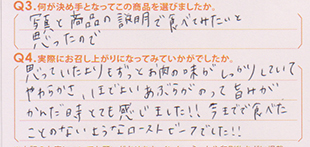 Q3.何が決め手となってこの商品を選びましたか。
写真と商品の説明で食べてみたいと
思ったので
Q4.実際にお召し上がりになってみていかがでしたか。
思っていたよりもずっとお肉の味がしっかりしていて
やわらかさ、ほどよいあぶらがのって旨みが
かんだ時とても感じました!!今までで食べた
ことのないようなローストビーフでした!!